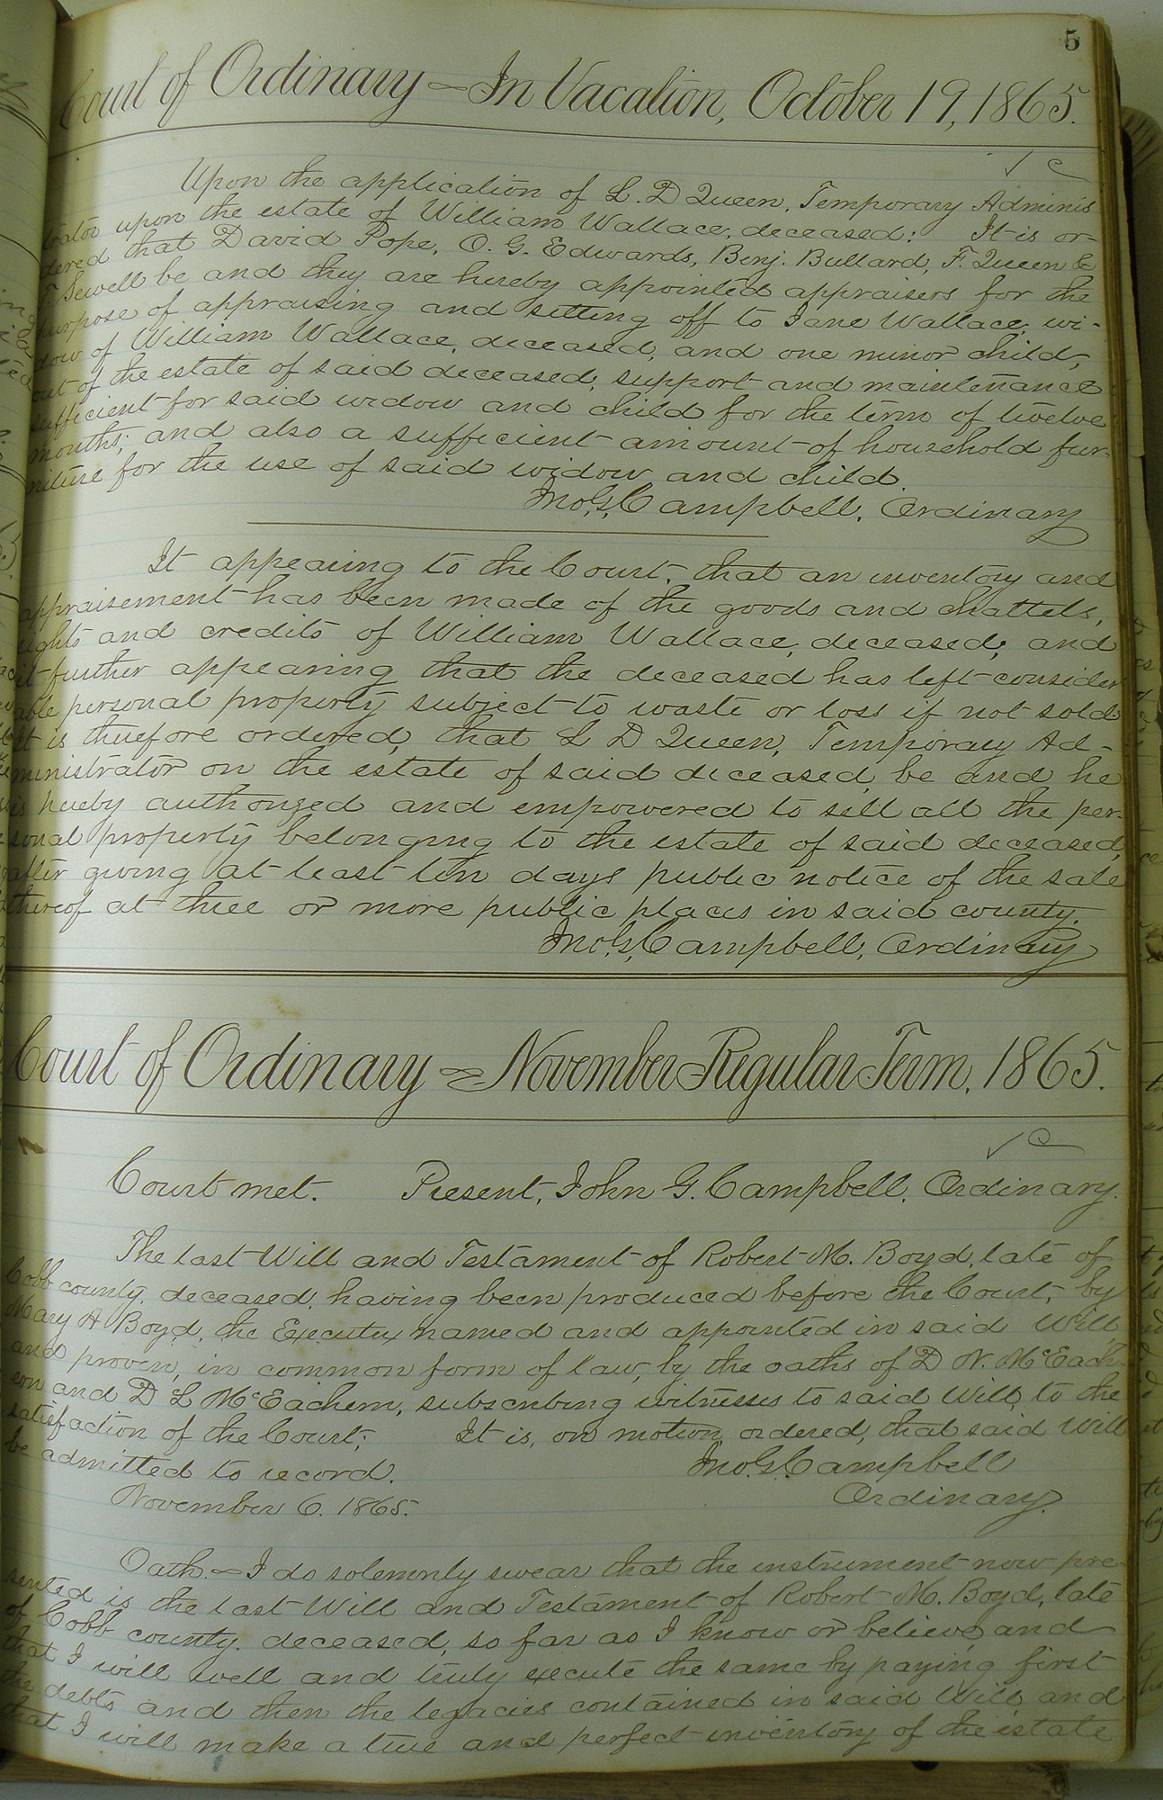 5
Court of Ordinary — In Vacation, October 19, 1865.
Upon the application of L. D Queen, Temporary Adminis
trator upon the estate of William Wallace, deceased: It is or-
dered that David Pope, O. G. Edwards, Benj. Bullard, F. Queen &
Sewell be and they are hereby appointed appraisers for the
purpose of appraising and setting off to Jane Wallace, wi-
dow of William Wallace, deceased, and one minor child,
out of the estate of said deceased, support and maintenance
sufficient for said widow and child for the term of twelve
months; and also a sufficient amount of household fur-
niture for the use of said widow and child.
Jno. G. Campbell, Ordinary
It appearing to the Court, that an inventory and
appraisement has been made of the goods and chattels,
rights and credits of William Wallace, deceased, and
it further appearing that the deceased has left consider
able personal property subject to waste or loss if not sold
It is therefore ordered, that L D Queen, Temporary Ad-
ministrator on the estate of said deceased, be and he
is hereby authorized and empowered to sell all the per-
sonal property belonging to the estate of said deceased,
after giving at least ten days public notice of the sale
thereof at three or more public places in said county.
Jno. G. Campbell, Ordinary
Court of Ordinary — November Regular Term, 1865.
Court met. Present, John G. Campbell, Ordinary.
The last Will and Testament of Robert M. Boyd, late of
Cobb county, deceased, having been produced before the Court, by
Mary A Boyd, the Executrix named and appointed in said Will,
and proven, in common form of law, by the oaths of D N. McEach
ern and D L McEachern, subscribing witnesses to said Will, to the
satisfaction of the Court; It is, on motion, ordered, that said Will
be admitted to record. Jno. G. Campbell
November 6. 1865. Ordinary.
Oath. — I do solemnly swear that the instrument now pre-
sented is the last Will and Testament of Robert M. Boyd, late
of Cobb county, deceased, so far as I know or believe, and
that I will well and truly execute the same by paying first
the debts and then the legacies contained in said Will, and
that I will make a true and perfect inventory of the estate